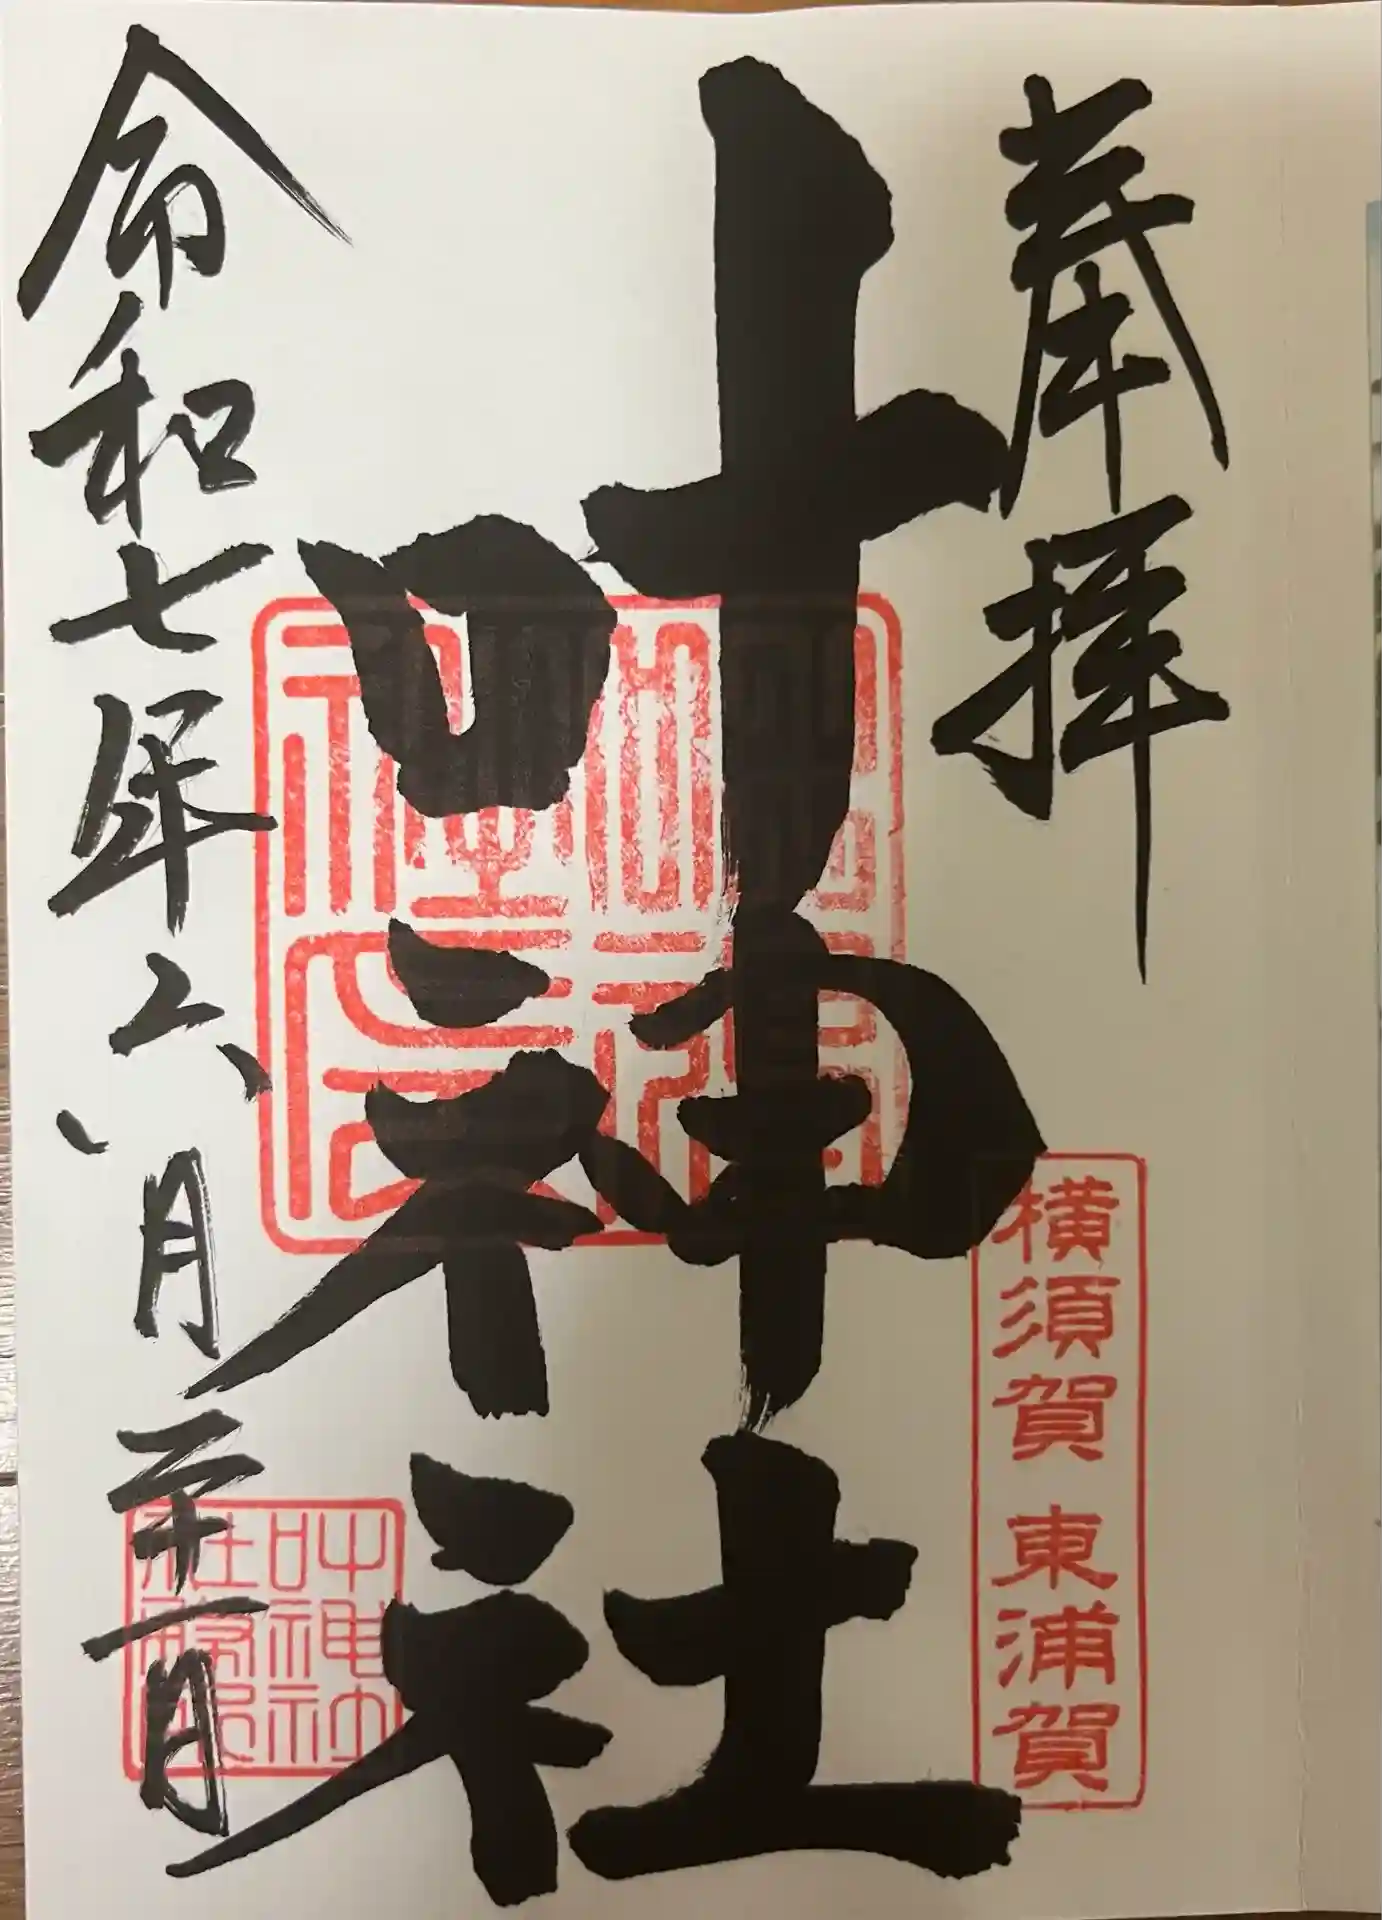 奉拝
横須賀 東浦賀
叶神社
令和七年六月二十一日
叶神社
社務所